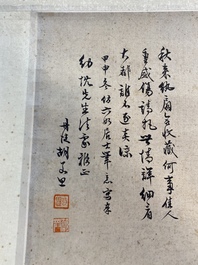 秋来纨扇合收藏何事佳人
重感伤请托世情详细看
大都谁不逐炎凉
甲申冬仿六如居士笔意写奉
幼忱先生法家雅正
丹徒胡